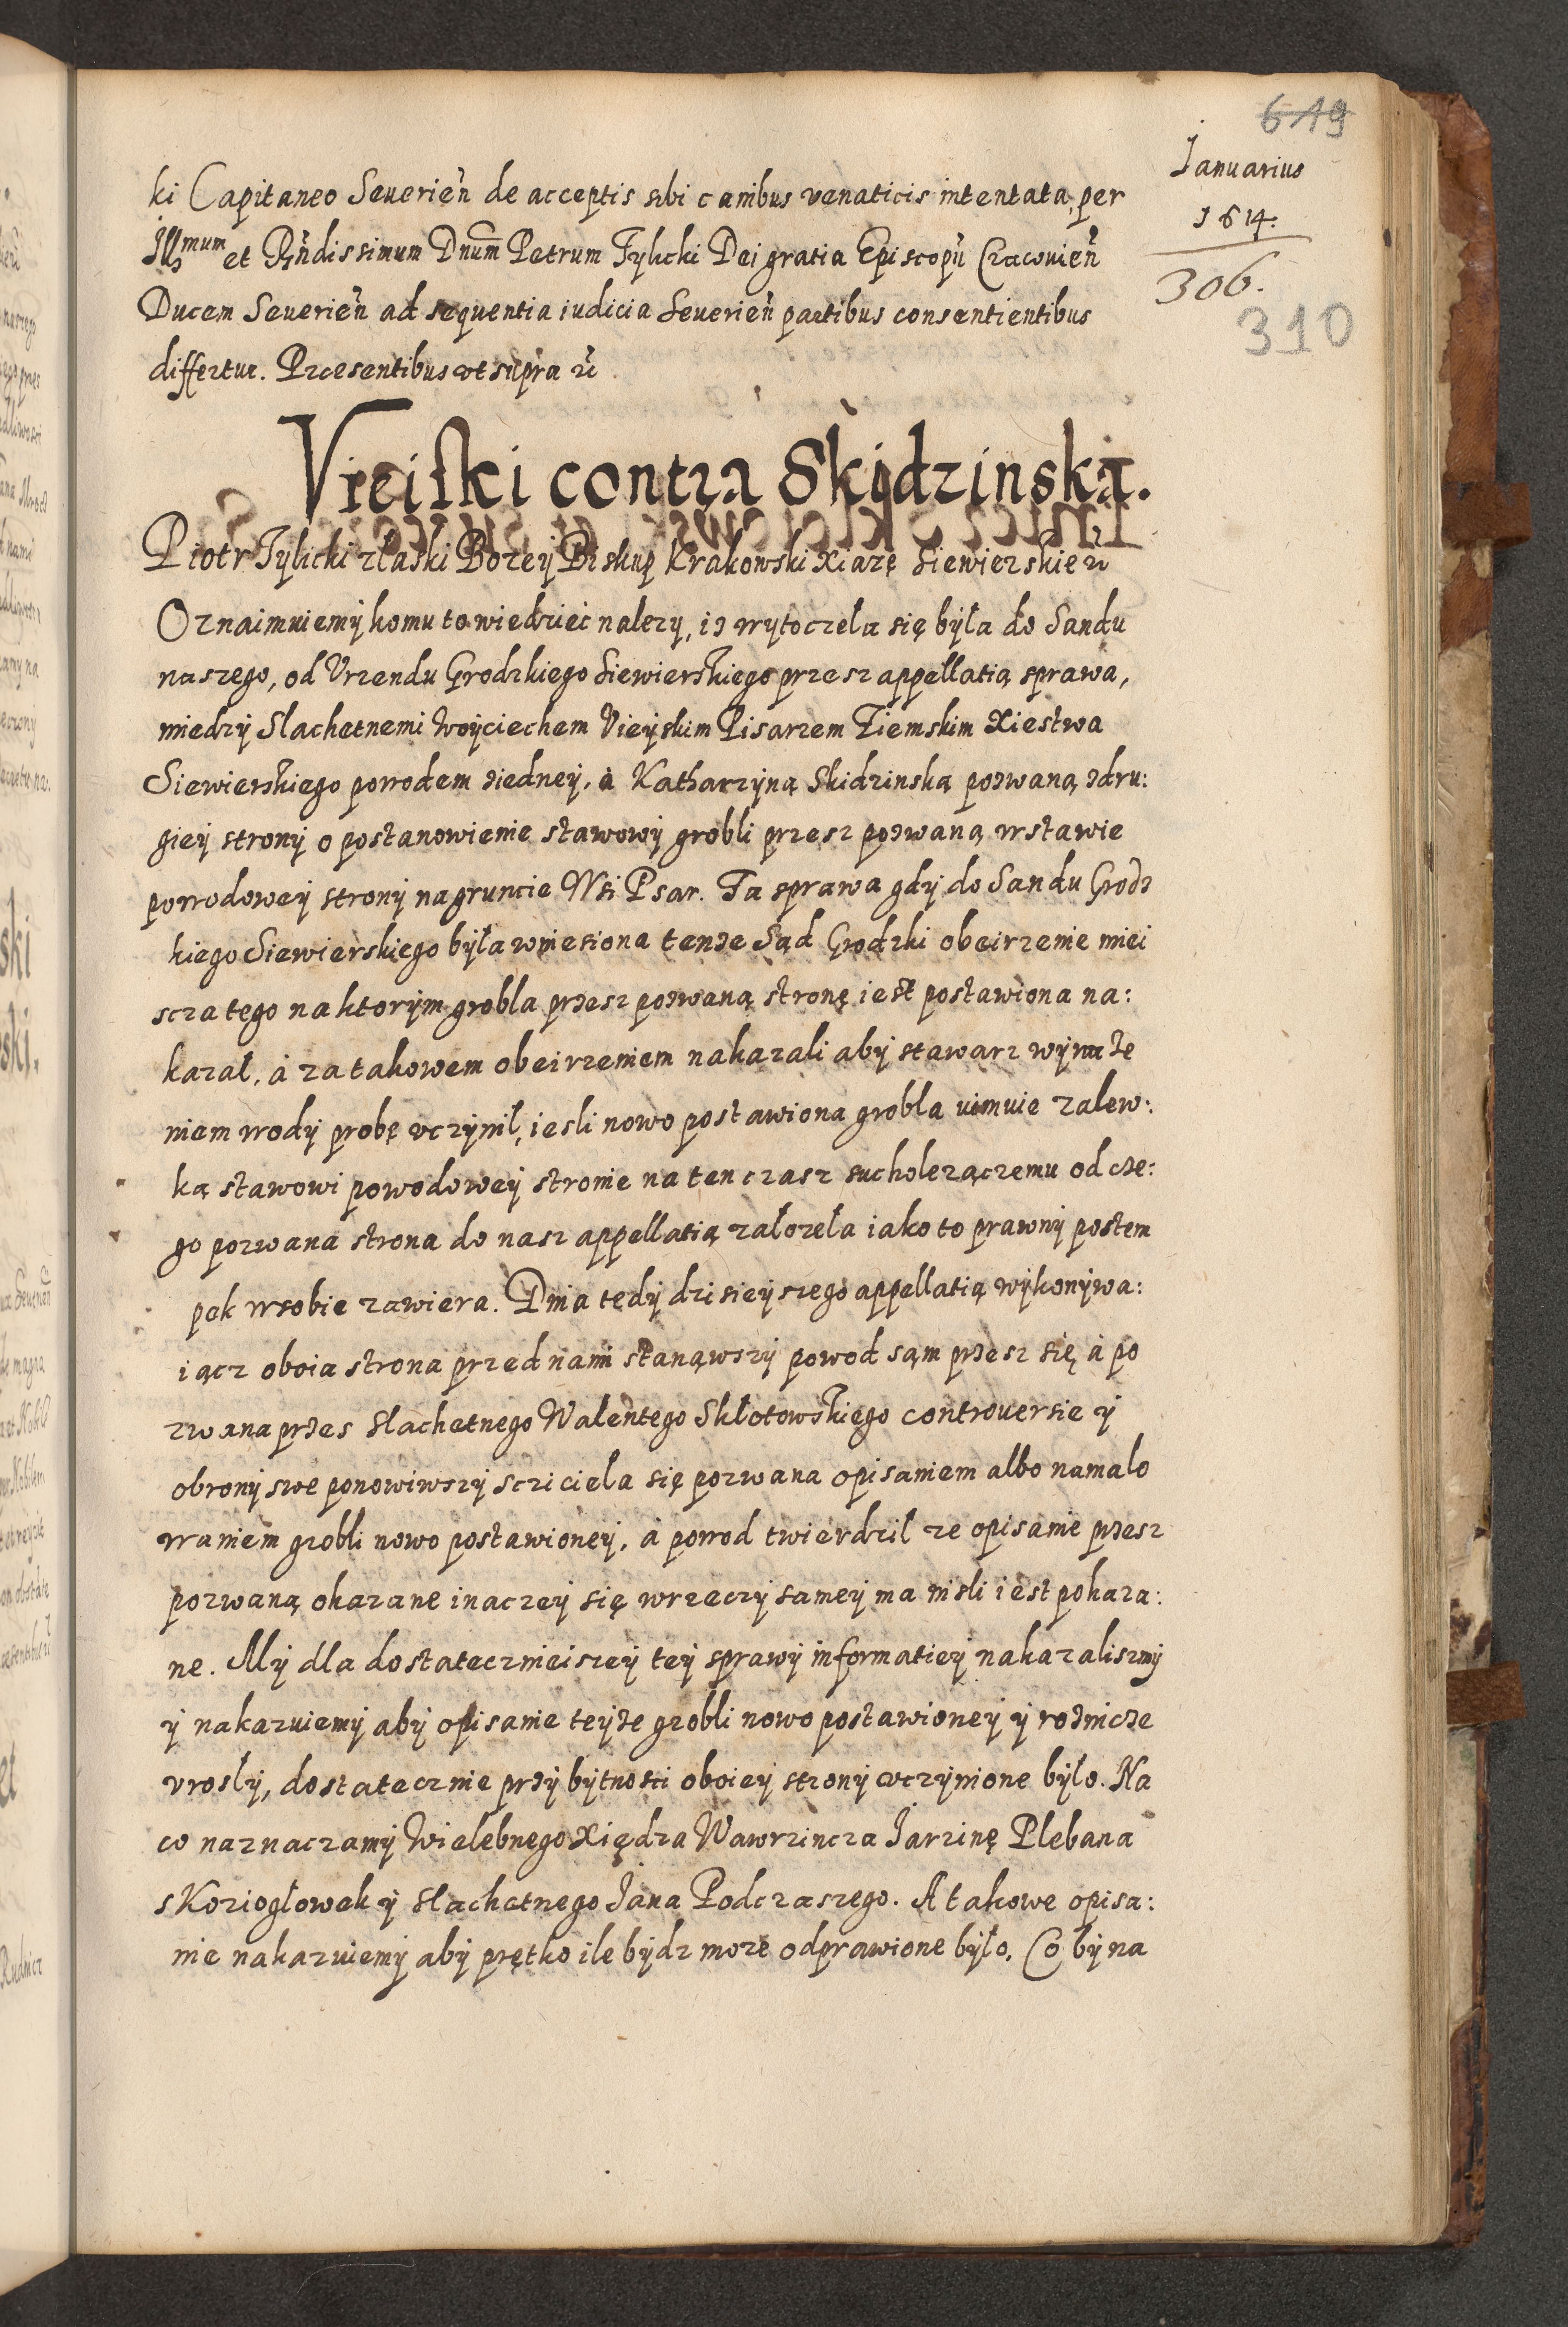 619
Januarius
1614.
306.
310
ki Capitaneo Seuerien̄ de acceptis sibi canibus venaticis intentata, per
Illmum et Rn̄dissimum Dnum̄ Petrum Tylicki Dei gratia Episcopū Cracouien̄
Ducem Seuerien̄ ad sequentia iudicia Seuerien̄ partibus consentientibus
differtur. Præsentibus vt supra
Vieiski contra Skidzinską.
Piotr Tylicki złaski Bozey Biskup Krakowski Xiazę Siewierskie
Oznaimuiemy komu to wiedzieć nalezy, iz wytoczela się była do Sandu
naszego, od Vrzendu Grodzkiego Siewierskiego przesz appellatią sprawa,
miedzy Slachetnemi Woyciechem Vieyskim Pisarzem Ziemskim Xiestwa
Siewierskiego powodem ziedney, à Katharzyną Skidzinską pozwaną zdru:
giey strony o postanowienie stawowy grobli przesz pozwaną wstawie
powodowey strony na gruncie Wsi Psar. Ta sprawa gdy do Sandu Grodz
kiego Siewierskiego była wniesiona tenze Sąd Grodzki obeirzenie miei
scza tego na ktorym grobla przesz pozwaną stronę iest postawiona na:
kazał, à za takowem obeirzeniem nakazali aby stawarz wywaze
niem wody probę vczynił, iesli nowo postawiona grobla uimuie zalew:
ką stawowi powodowey stronie na ten czasz sucholezączemu od cze:
go pozwana strona do nasz appellatią załozeła iako to prawny postem
pek wsobie zawiera. Dnia tedy dzisieyszego appellatią wykonywa:
iącz oboia strona przed nami stanąwszy powod sąm przesz się à po
zwana przes Slachetnego Walentego Skłotowskiego controuersie y
obrony swe ponowiwszy sczicieła się pozwana opisaniem albo namalo
waniem grobli nowo postawioney, à powod twierdzil ze opisanie przesz
pozwaną okazane inaczey się wrzeczy samey ma nisli iest pokaza:
ne. My dla dostateczneiszey tey sprawy informatiey nakazaliszmy
y nakazuiemy aby opisanie teyze grobli nowo postawioney y roznicze
vrosly, dostatecznie przy bytnosci oboiey strony vczynione było. Na
co naznaczamy Wielebnego Xiędza Wawrzincza Jarzinę Plebana
s Koziogłowek y Slachetnego Jana Podczaszego. A takowe opisa:
nie nakazuiemy aby prętko ile bydz moze odprawione było, Co by na